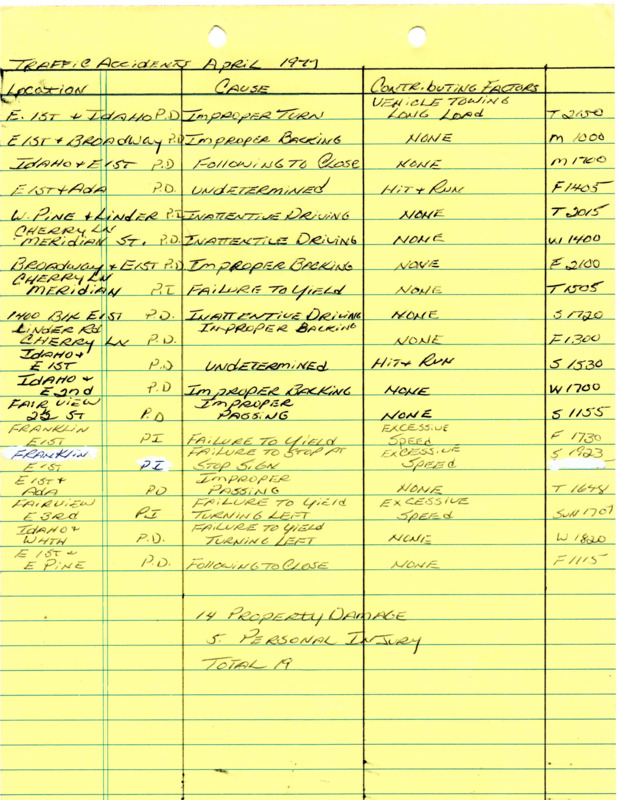 TRAFFIC ACCIDENTS APRIL 1977
LOCATION CAUSE CONTRIBUTING FACTORS
VEHICLE TOWING
E. 1ST & IDAHO P.D IMPROPER TURN LONG LOAD T 2150
E 1ST & BROADWAY P.D IMPROPER BACKING NONE M 1000
IDAHO & E 1ST P.D FOLLOWING TO CLOSE NONE M 1700
E 1ST & ADA P.D. UNDETERMINED HIT & RUN F 1405
W. PINE & LINDER P.I INATTENTIVE DRIVING NONE T 2015
CHERRY LN
MERIDIAN ST. P.D. INATTENTIVE DRIVING NONE W 1400
BROADWAY & E 1ST P.D IMPROPER BACKING NONE F 2100
CHERRY LN
MERIDIAN P.I FAILURE TO YIELD NONE T 1505
1400 BLK E 1ST P.D. INATTENTIVE DRIVING NONE S 1720
LINDER RD IMPROPER BACKING
CHERRY LN P.D. NONE F 1300
IDAHO &
E 1ST P.D UNDETERMINED HIT & RUN S 1530
IDAHO &
E 2nd P.D IMPROPER BACKING NONE W 1700
FAIRVIEW IMPROPER
2½ ST P.D PASSING NONE S 1155
FRANKLIN EXCESSIVE
E 1ST PI FAILURE TO YIELD SPEED F 1730
FRANKLIN FAILURE TO STOP AT EXCESSIVE
E 1ST PI STOP SIGN SPEED S 1923
E 1ST & IMPROPER
ADA PD PASSING NONE T 1648
FAIRVIEW FAILURE TO YIELD EXCESSIVE
E 3RD P.I TURNING LEFT SPEED SUN 1707
IDAHO & FAILURE TO YIELD
W4TH P.D. TURNING LEFT NONE W 1820
E 1ST &
E PINE P.D. FOLLOWING TO CLOSE NONE F 1115
14 PROPERTY DAMAGE
5. PERSONAL INJURY
TOTAL 19